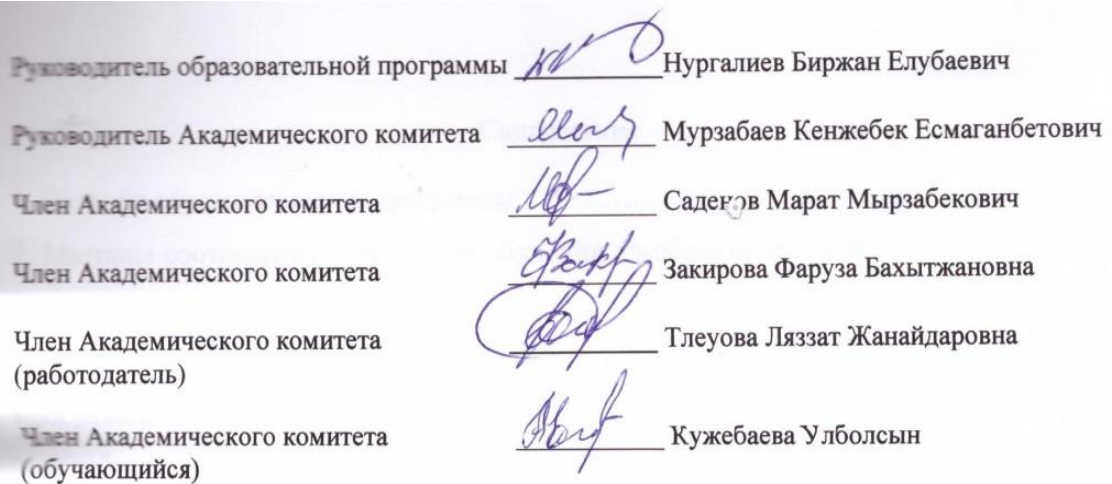 Руководитель образовательной программы Нургалиев Биржан Елубаевич
Руководитель Академического комитета Мурзабаев Кенжебек Есмаганбетович
Член Академического комитета Садеков Марат Мырзабекович
Член Академического комитета Закирова Фаруза Бахытжановна
Член Академического комитета Тлеуова Ляззат Жанайдаровна
(работодатель)
Член Академического комитета Кужебаева Улболсын
(обучающийся)